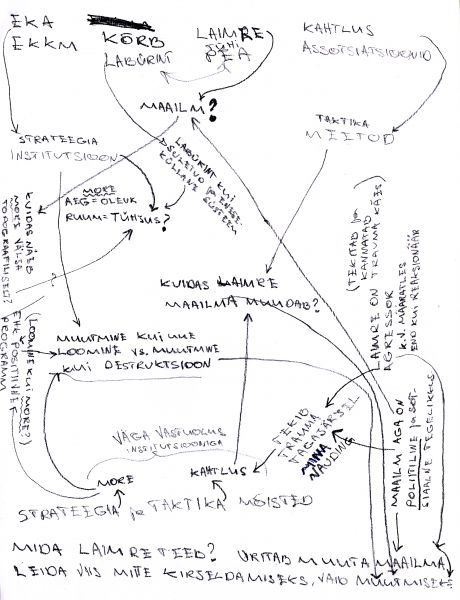 EKA
EKKM
KÕRB
LABÜRINT
LAIMRE
PEA
KAHTLUS
ASSOTSIATSIOONID
MAAILM?
TAKTIKA
MEETOD
STRATEEGIA
INSTITUTSIOON
LABÜRINT KUI
SULETUD ja ENESE-
KÜLLANE SÜSTEEM
MORE
AEG = OLEVIK
RUUM = TÜHSUS?
KUIDAS NÄEB
MORE VÄLJA
TOPOGRAAFILISELT?
EHK POSITIIVNE PROGRAMM
(LOOMINE KUI MORE?)
KUIDAS LAIMRE
MAAILMA MUUDAB?
(TEKITAB ja
KANNATAB
LAIMRE ON TRAUMA KÄIS
AGRESSOR
K.N. MÄÄRATLES
END KUI REAKSIONÄÄR
MUUTMINE KUI UUE
LOOMINE VS. MUUTMINE
KUI DESTRUKTSIOON
VÄGA VASTUOLUS
INSTITUTSIOONIGA
MORE
KAHTLUS
TEKIB
TRAUMA
TAGAJÄRJEL
NAUDING
MAAILM AGA ON
POLIITILINE ja SOT-
SIAALNE TEGELIKKUS
STRATEEGIA ja TAKTIKA MÕISTED
MIDA LAIMRE TEEB? ÜRITAB MUUTA MAAILMA
LEIDA VIIS MITTE KIRJELDAMISEKS, VAID MUUTMISEKS